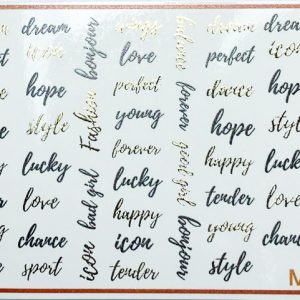 dream
icon
hope
style
lucky
love
chance
sport
bonjour
Fashion
bad girl
icon
wings
love
perfect
young
forever
lucky
happy
icon
tender
forever
good girl
bonjour
dream
perfect
dance
hope
happy
tender
young
style
dream
icon
hope
style
lucky
love
chance
M